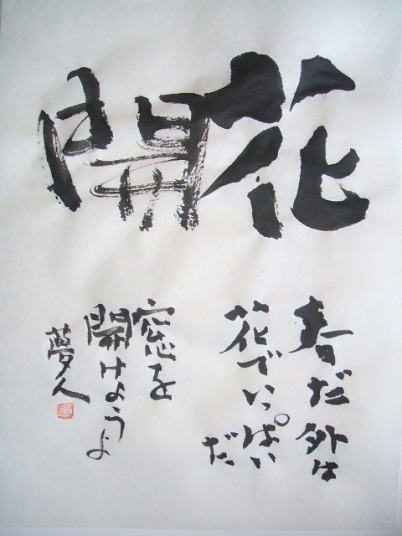 花開
春だ外は
花でいっぱい
だ
窓を
開けようよ
夢人